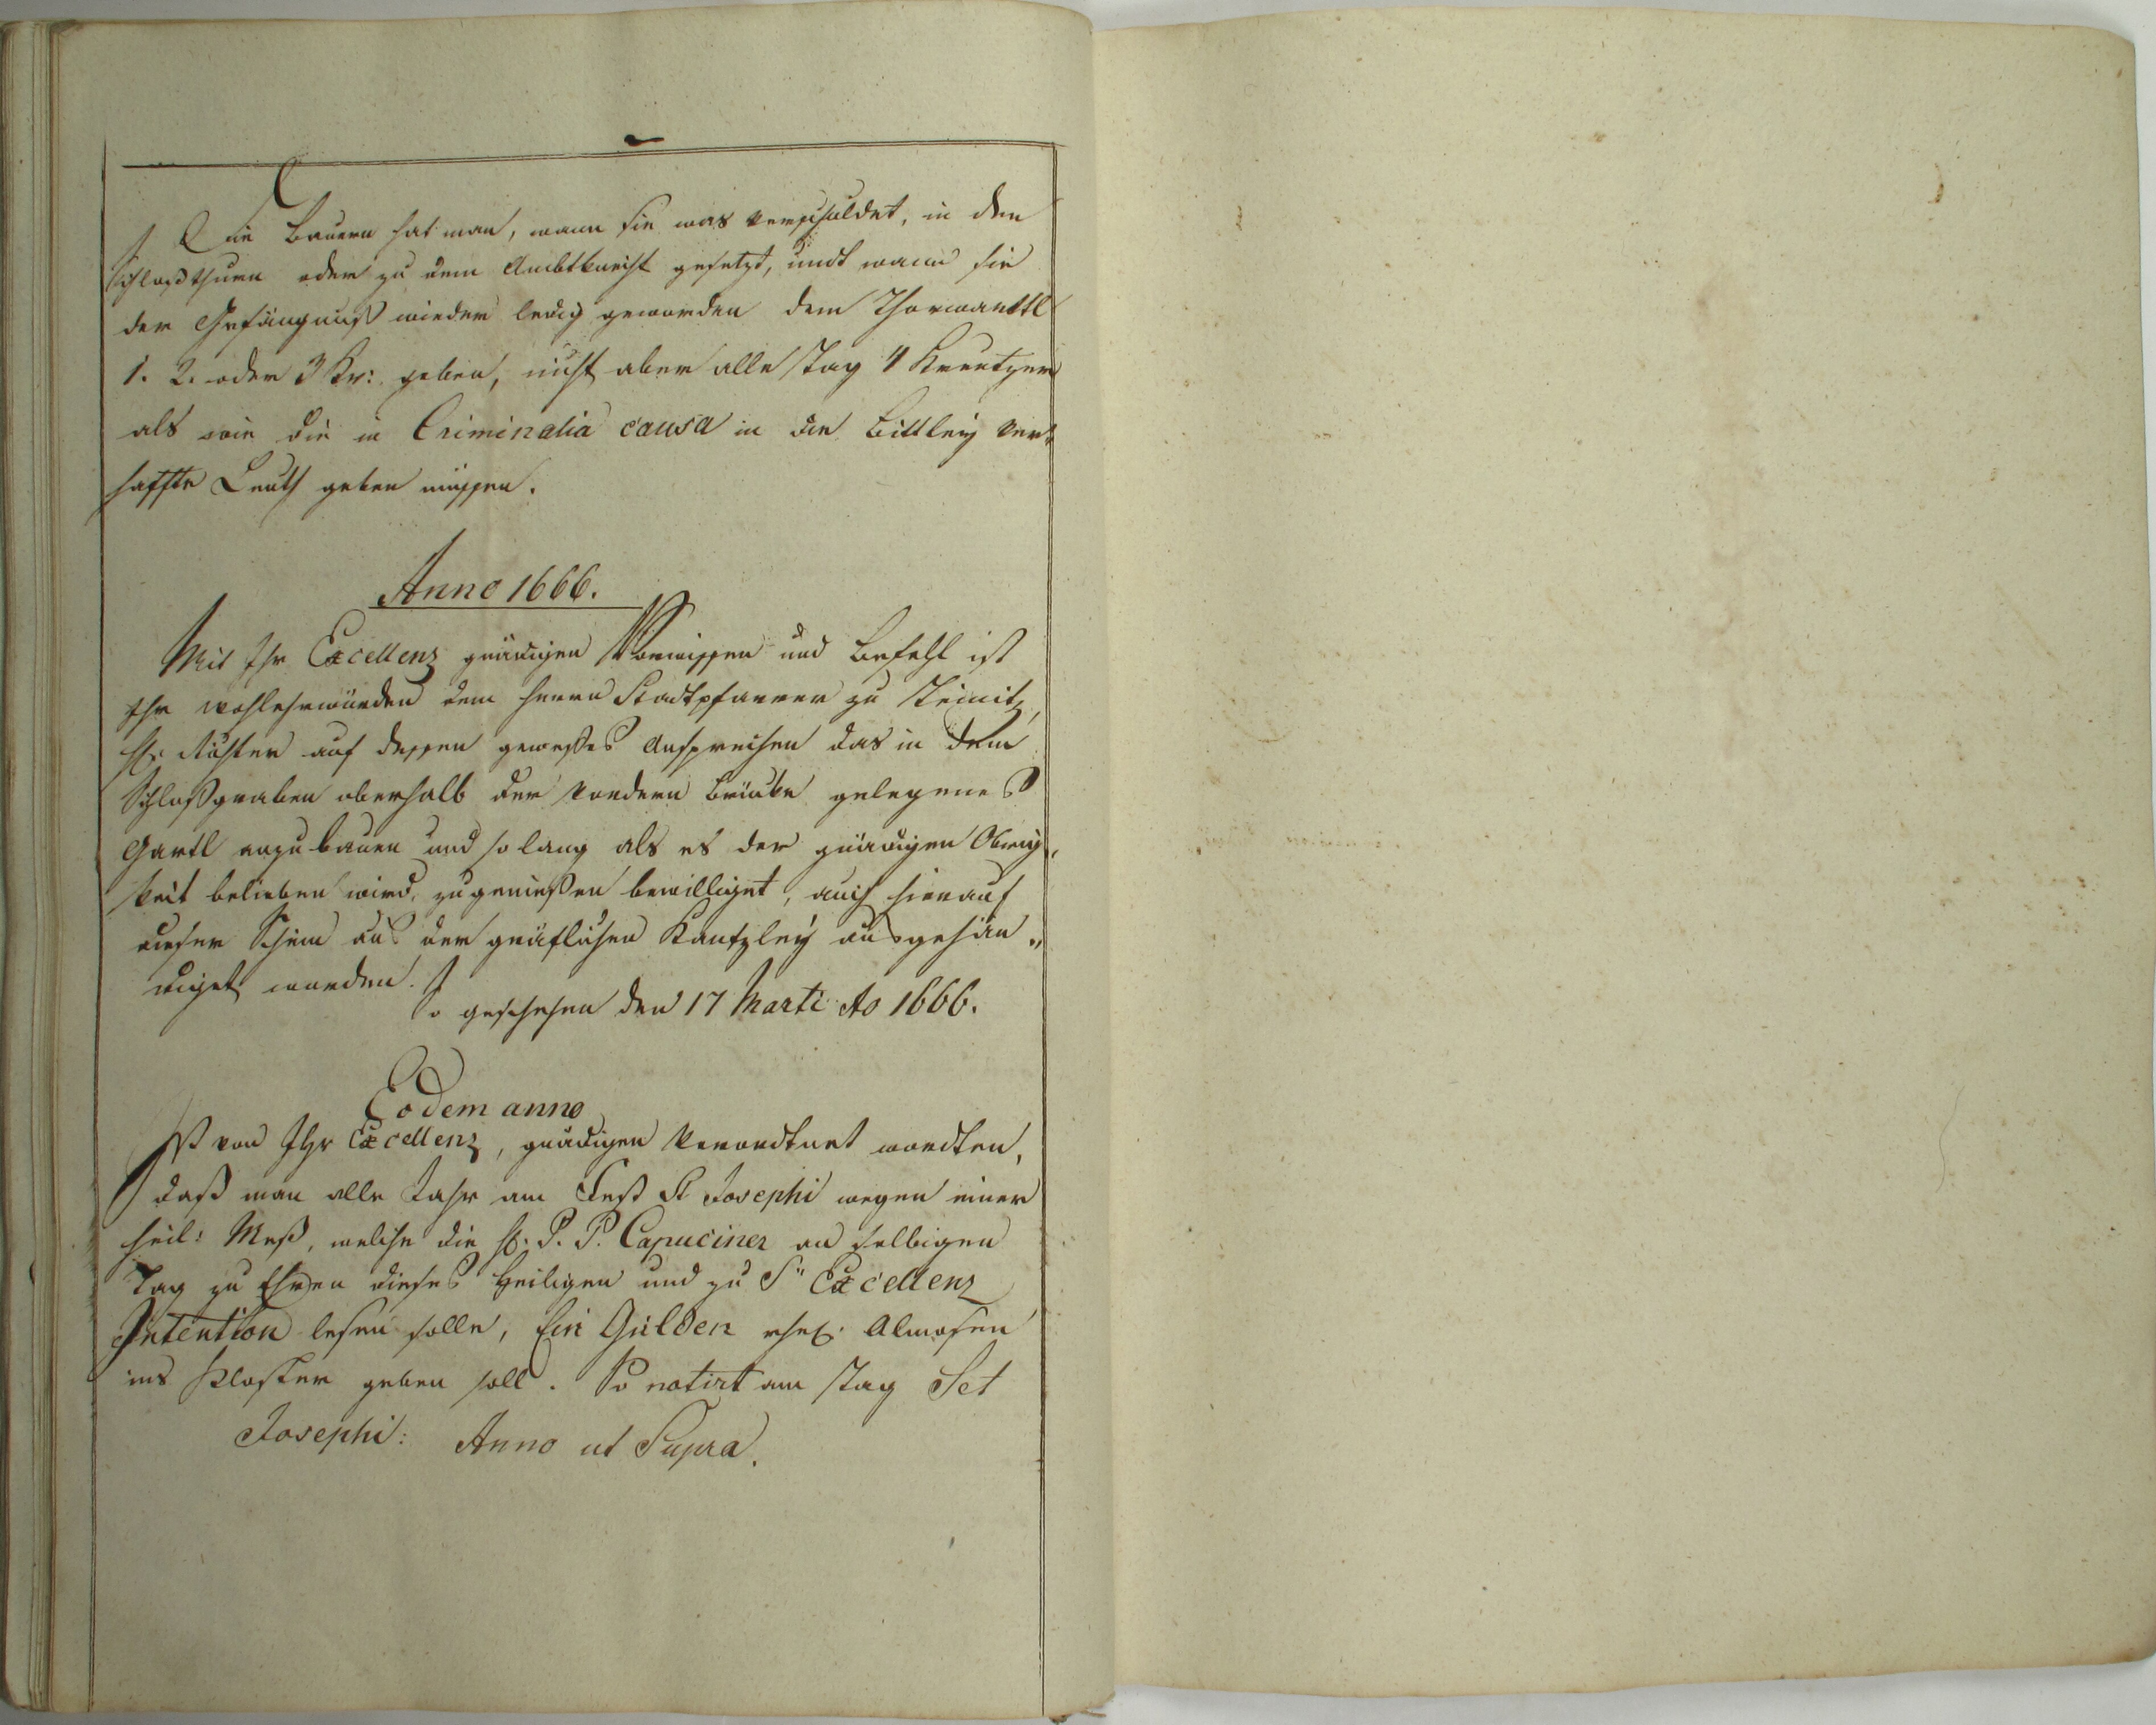 Die Bauern hat man, wann sie was verschuldet, in den
Schloßthurn oder zu dem Ambtknecht gesetzt, undt wann sie
der Gefängnuß wieder ledig geworden dem Thorwarttl
1. 2. oder 3 Kr: geben, nicht aber alle Tag 4 Kreutzer
als wie die in Criminalia causa in der Bittley ver-
haffte Leuth geben müssen.
Anno 1666.
Mit Ihr Excellenz gnädigen Vorwissen und Befehl ist
Ihr wohlehrwürden dem Herrn Stadtpfarrer zu
H: Richter auf dessen gewestes Ansprechen das in dem
Schloßgraben oberhalb der vordern Brücke gelegenes
Gartl anzubauen und so lang als es der gnädigen Obrig-
keit belieben wird, zugenießen bewilliget, auch hierauf
dieser Schein aus der gräflichen Kantzley ausgehän„
diget worden.
So geschehen den 17 Marti Ao 1666.
Eodem anno
Ist von Ihr Excellenz, gnädigen verordtnet wordten,
daß man alle Jahr am Fest St Josephi wegen einer
heil: Meß, welche die H. P. P. Capuciner an selbigen
Tag zu Ehren dieses Heiligen und zu Sr Excellenz
Intention lesen solle, Ein Gulden rhe: Almosen
ins Kloster geben soll. So notirt am Tag Sct
Josephi: Anno ut Supra.